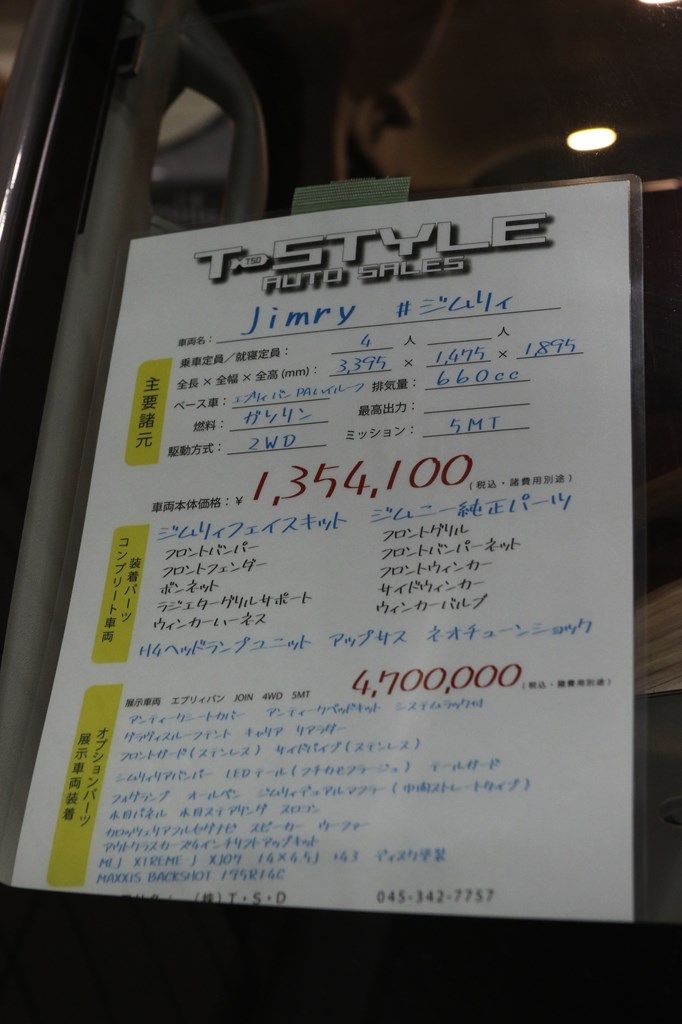 T×TSDSTYLE
AUTO SALES
車両名: Jimry #ジムリィ
主要諸元
乗車定員/就寝定員: 4 人 人
全長×全幅×全高(mm): 3,395 × 1,475 × 1,895
ベース車: エブリィバン PAハイルーフ 排気量: 660cc
燃料: ガソリン 最高出力:
駆動方式: 2WD ミッション: 5MT
車両本体価格:¥ 1,354,100 (税込・諸費用別途)
コンプリート車両
装着パーツ
ジムリィフェイスキット ジムニー純正パーツ
フロントバンパー フロントグリル
フロントフェンダー フロントバンパーネット
ボンネット フロントウィンカー
ラジエターグリルサポート サイドウィンカー
ウィンカーハーネス ウィンカーバルブ
H4ヘッドランプユニット アップサス ネオチューンショック
4,700,000 (税込・諸費用別途)
展示車両装着
オプションパーツ
展示車両 エブリィバン JOIN 4WD 5MT
アンティークシートカバー アンティークベッドキット システムラック付
グラヴィスルーフテント キャリア リアラダー
フロントガード(ステンレス) サイドパイプ(ステンレス)
ジムリィリアバンパー LEDテール(フチカセフラージュ) テールガード
フォグランプ オールペン ジムリィデュアルマフラー(中間ストレートタイプ)
木目パネル 木目ステアリング スロコン
カロッツェリアフルセグナビ スピーカー ウーファー
アウトクラスカーズ4インチリフトアップキット
MLJ XTREME-J XJ07 14×4.5J +43 ディスク塗装
MAXXIS BACKSHOT 195R14C
(株)T・S・D 045-342-7757